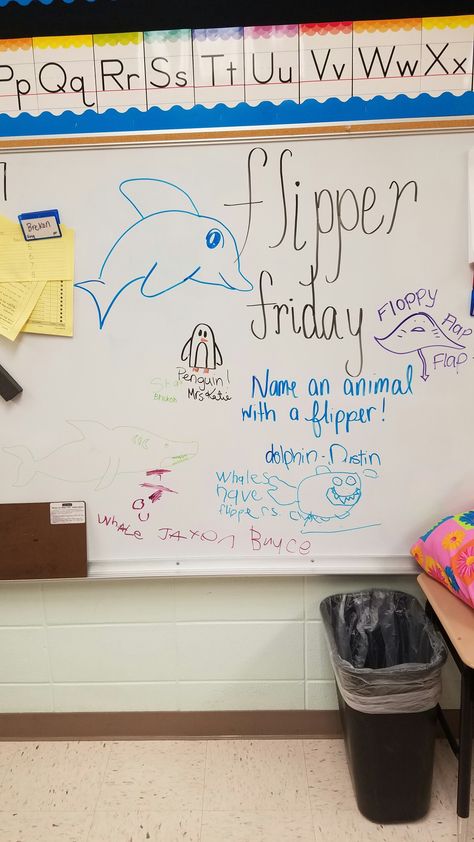 Pp Qq Rr Ss Tt Uu Vv Ww Xx
flipper
friday
Brekon
FLOPPY
Flap
Flap
Penguin!
Mrs. Katie
Name an animal
with a flipper!
dolphin-Dustin
Whales
have
flippers.
WHALE JAXON BRYCE